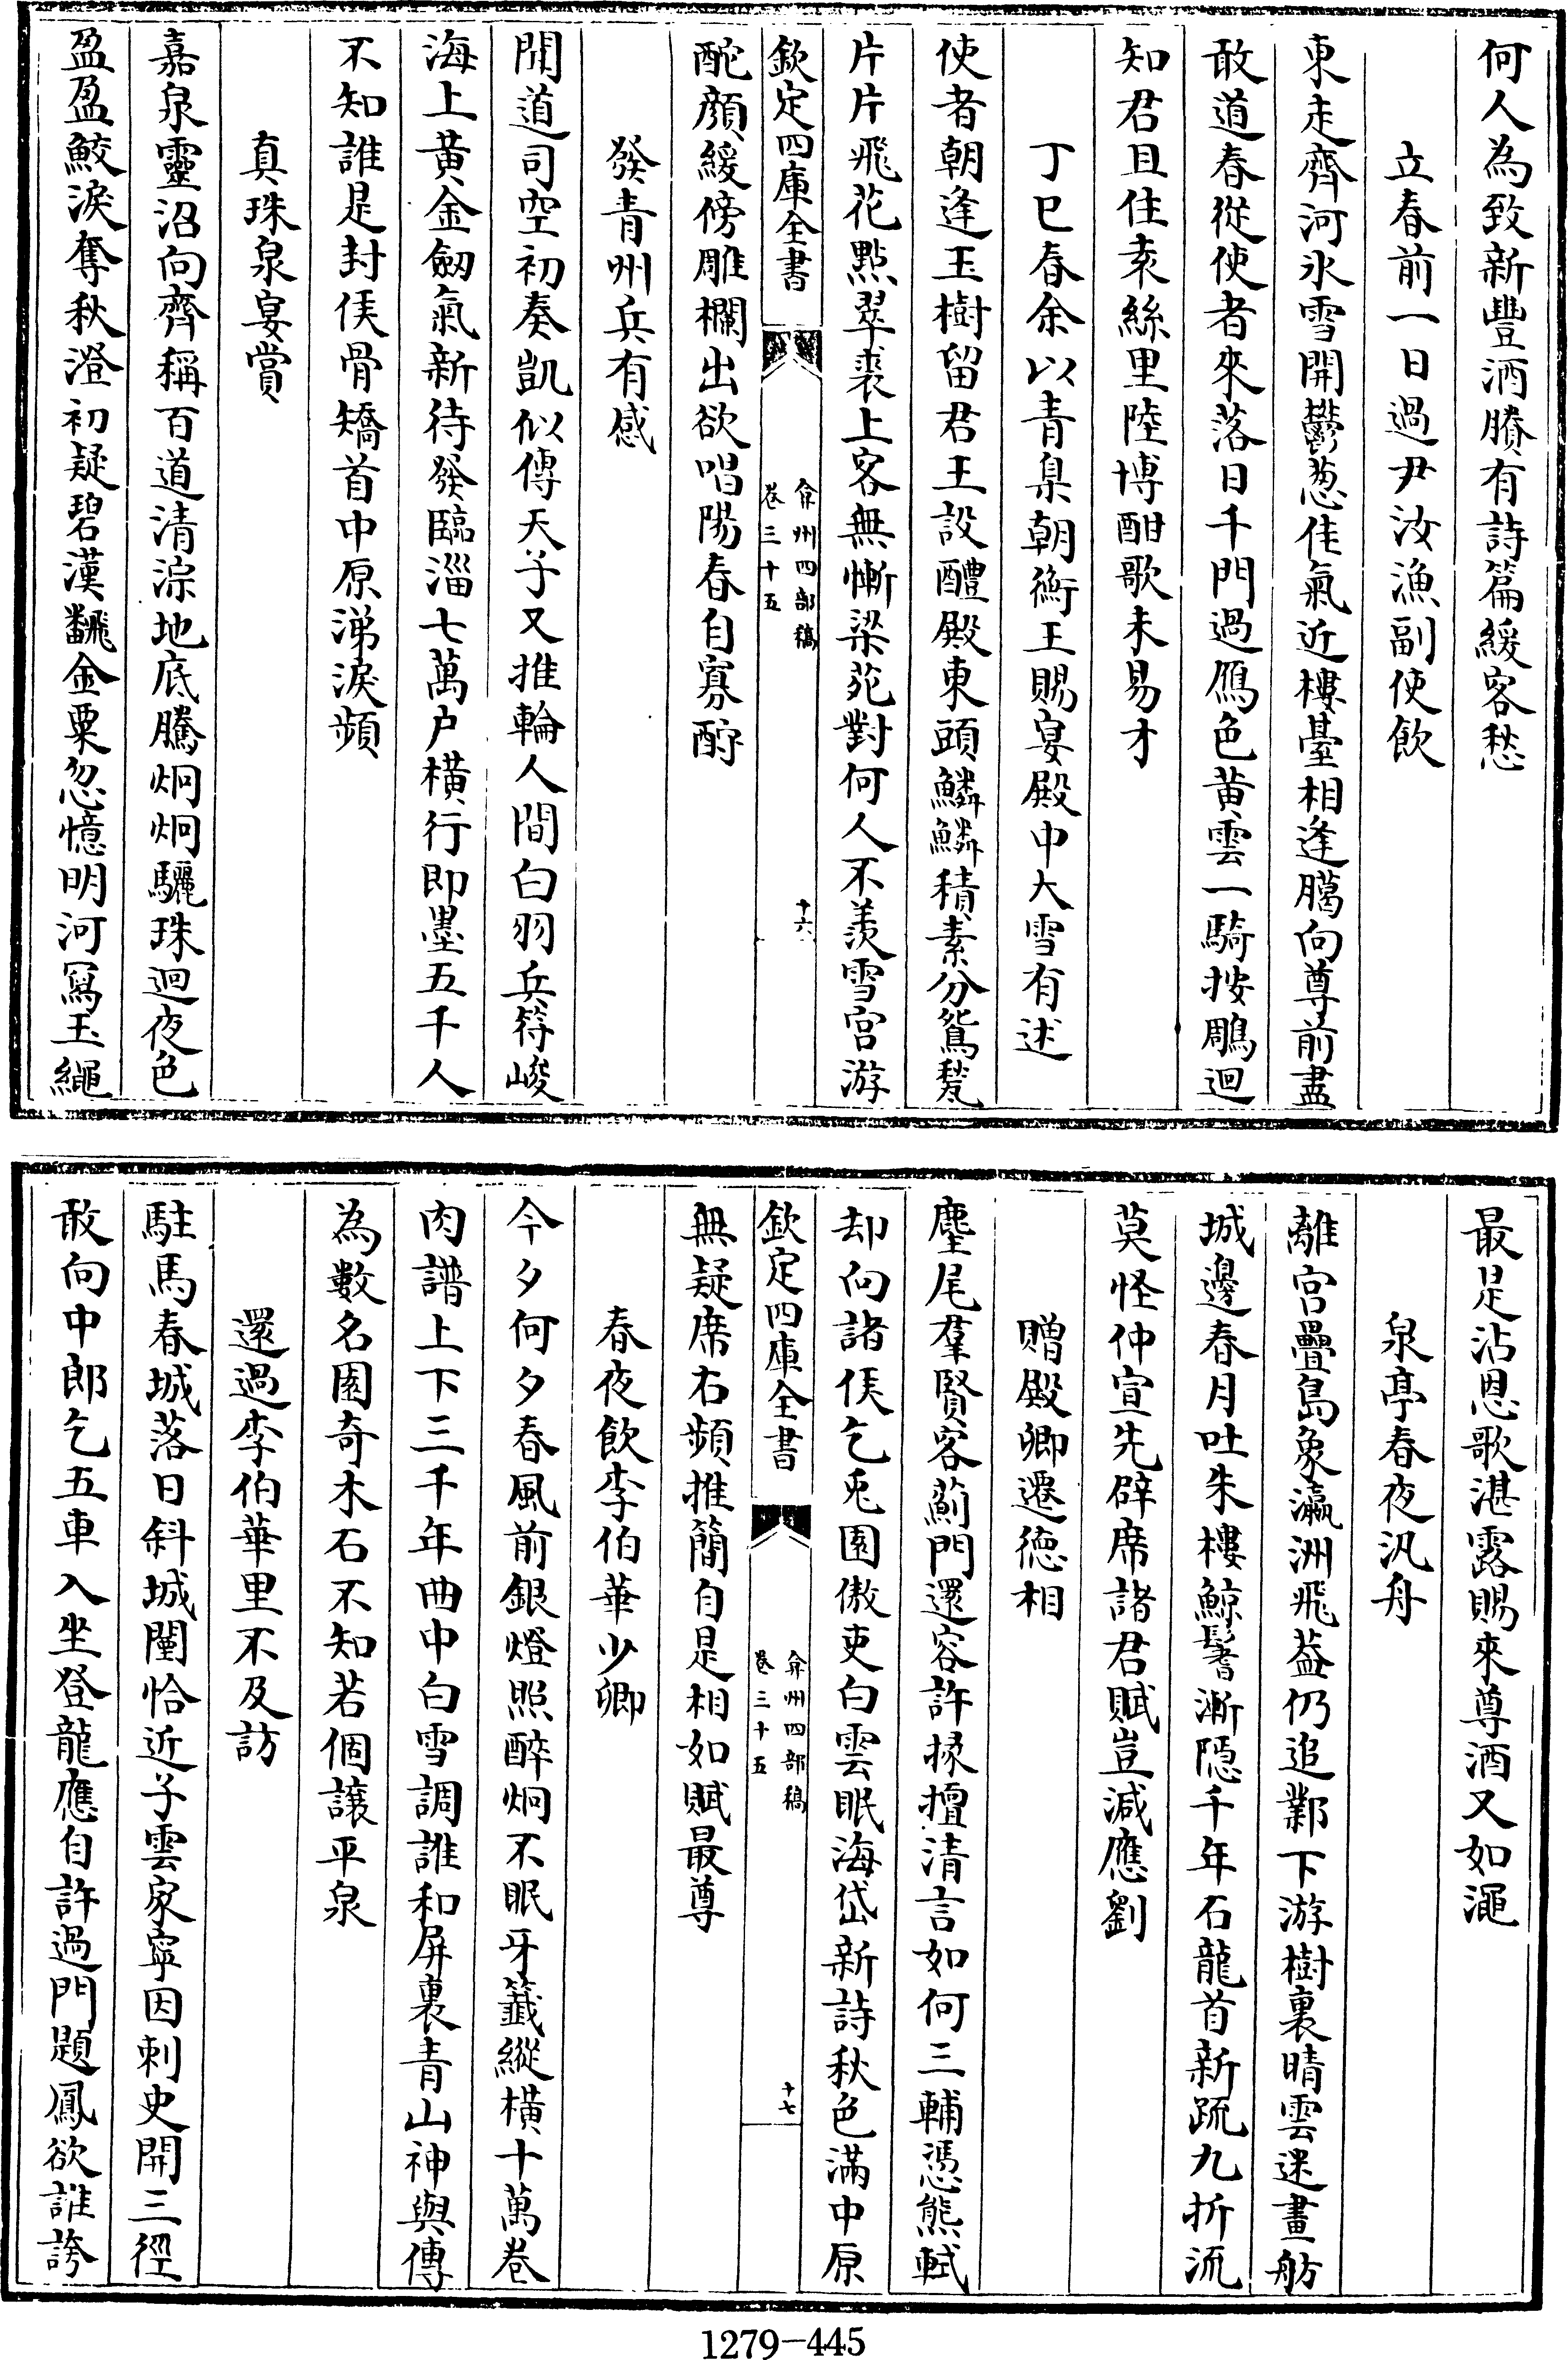 何人為致新豐酒賸有詩篇緩客愁
立春前一日過尹汝漁副使飲
東走齊河氷雪開鬱葱佳氣近樓臺相逢臈向尊前盡
敢道春從使者來落日千門過鴈色黄雲一騎按鵰迴
知君且住素絲里陸博酣歌未易才
丁巳春余以青臬朝衡王賜宴殿中大雪有述
使者朝逢玉樹留君王設醴殿東頭鱗鱗積素分鴛甃
片片飛花㸃翠裘上客無慚梁苑對何人不羡雪宫游
欽定四庫全書
弇州四部稿
卷三十五
十六
酡顔緩傍雕欄出欲唱陽春自寡酧
發青州兵有感
聞道司空初奏凱似傳天子又推輪人間白羽兵符峻
海上黄金劒氣新待發臨淄七萬户横行即墨五千人
不知誰是封侯骨矯首中原涕淚頻
真珠泉宴賞
嘉泉靈沼向齊稱百道清淙地底騰炯炯驪珠迴夜色
盈盈鮫淚奪秋澄初疑碧漢飜金粟忽憶明河冩玉繩
最是沾恩歌湛露賜來尊酒又如澠
泉亭春夜汎舟
離宫疊島象瀛洲飛葢仍追鄴下游樹裏晴雲迷畫舫
城邊春月吐朱樓鯨鬐漸隱千年石龍首新疏九折流
莫怪仲宣先辟席諸君賦豈減應劉
贈殿卿遷德相
麈尾羣賢客薊門還容許掾擅清言如何三輔憑熊軾
却向諸侯乞兎園傲吏白雲眠海岱新詩秋色滿中原
欽定四庫全書
弇州四部稿
卷三十五
十七
無疑席右頻推簡自是相如賦最尊
春夜飲李伯華少卿
今夕何夕春風前銀燈照醉炯不眠牙籤縱横十萬卷
肉譜上下三千年曲中白雪調誰和屏裏青山神與傳
為數名園奇木石不知若個讓平泉
還過李伯華里不及訪
駐馬春城落日斜城闉恰近子雲家寜因刺史開三徑
敢向中郎乞五車入坐登龍應自許過門題鳳欲誰誇
1279-445